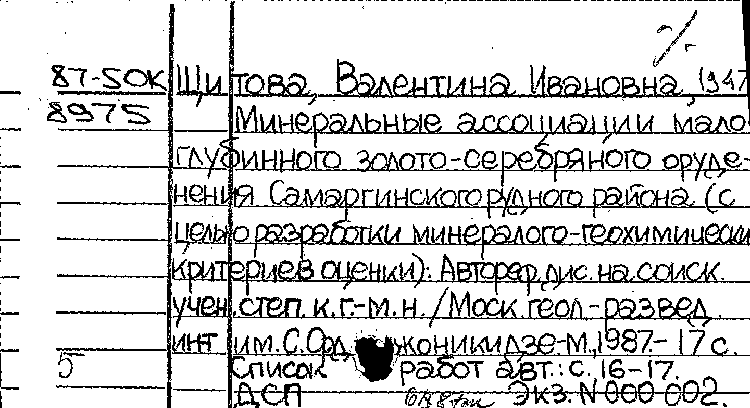 87-50К Щитова, Валентина Ивановна, 1947
8975 Минеральные ассоциации мало
глубинного золото-серебряного оруде-
нения Самаргинского рудного района (с
целью разработки минералого-геохимически
критериев оценки): Автореф. дис. на соиск.
учен. степ. к. г.-м. н. / Моск. геол.-развед.
инт им. С. Орджоникидзе-М., 1987.- 17 с.
5 Список работ авт.: с. 16-17.
ДСП Экз. N 000 002.